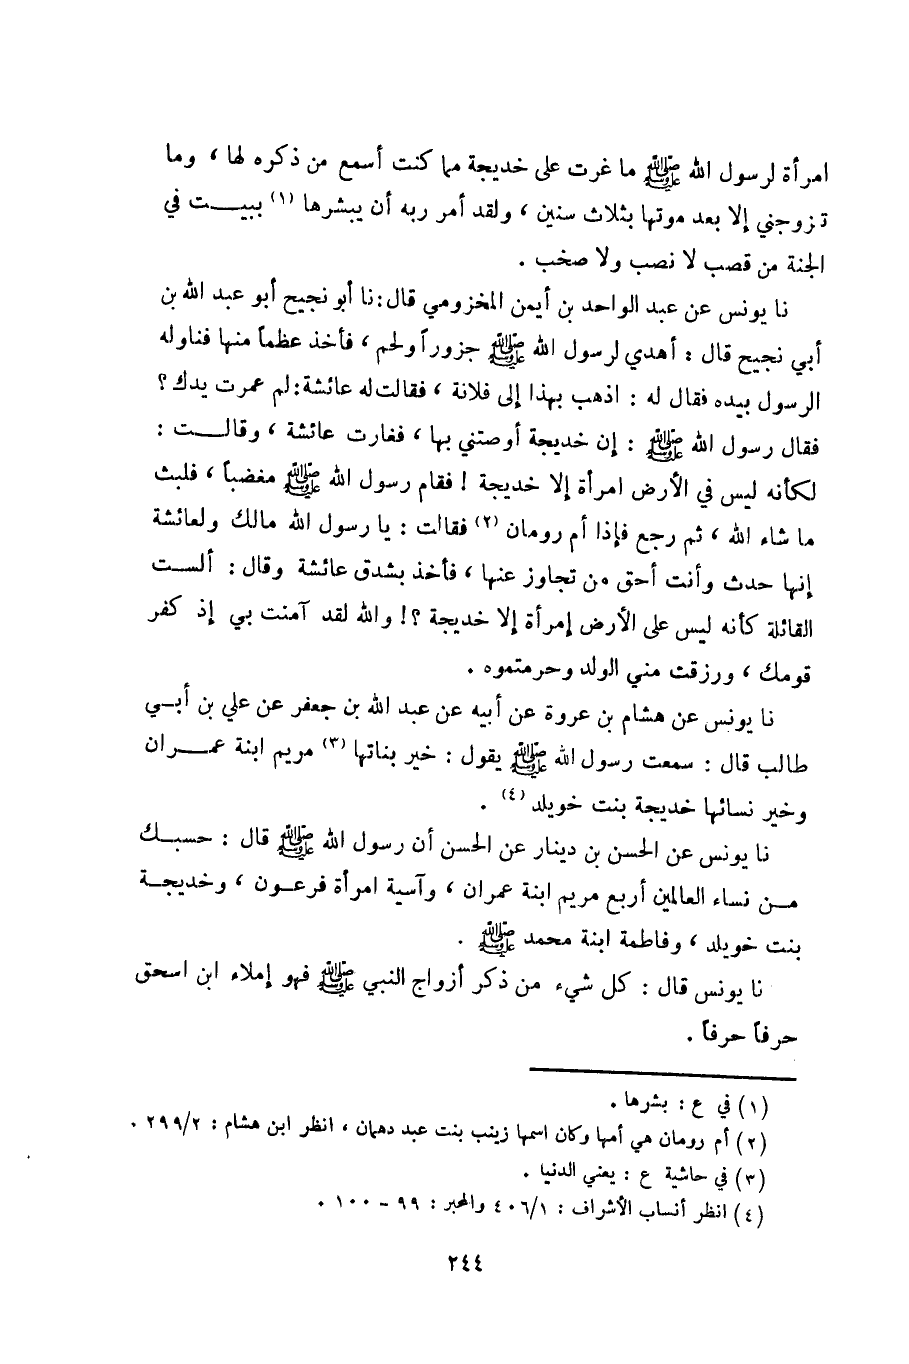 امرأة لرسول الله ﷺ ما غرت على خديجة مما كنت أسمع من ذكره لها ، وما
تزوجني إلا بعد موتها بثلاث سنين ، ولقد أمر ربه أن يبشرها (١) ببيـــت في
الجنة من قصب لا نصب ولا صخب .
نا يونس عن عبد الواحد بن أيمن المخزومي قال : نا أبو نجيح أبو عبد الله بن
أبي نجيح قال : أهدي لرسول الله ﷺ جزوراً ولحم ، فأخذ عظماً منها فناوله
الرسول بيده فقال له : اذهب بهذا إلى فلانة ، فقالت له عائشة : لم غمرت يدك ؟
فقال رسول الله ﷺ : إن خديجة أوصتني بها ، فغارت عائشة ، وقالـــت :
لكأنه ليس في الأرض امرأة إلا خديجة ! فقام رسول الله ﷺ مغضباً ، فلبث
ما شاء الله ، ثم رجع فإذا أم رومان (٢) فقالت : يا رسول الله مالك ولعائشة
إنها حدث وأنت أحق من تجاوز عنها ، فأخذ بشدق عائشة وقال : ألست
القائلة كأنه ليس على الأرض إمرأة إلا خديجة ؟! والله لقد آمنت بي إذ كفر
قومك ، ورزقت مني الولد وحرمتموه .
نا يونس عن هشام بن عروة عن أبيه عن عبد الله بن جعفر عن علي بن أبـي
طالب قال : سمعت رسول الله ﷺ يقول : خير بناتها (٣) مريم ابنة عمـــران
وخير نسائها خديجة بنت خويلد (٤) .
نا يونس عن الحسن بن دينار عن الحسن أن رسول الله ﷺ قال : حسبـك
مـن نساء العالمين أربع مريم ابنة عمران ، وآسية امرأة فرعـون ، وخديجـة
بنت خويلد ، وفاطمة ابنة محمد ﷺ .
نا يونس قال : كل شيء من ذكر أزواج النبي ﷺ فهو إملاء ابن اسحق
حرفاً حرفاً .
(١) في ع : بشرها .
(٢) أم رومان هي أمها وكان اسمها زينب بنت عبد دهمان ، انظر ابن هشام : ٢٩٩/٢ .
(٣) في حاشية ع : يعني الدنيا .
(٤) انظر أنساب الأشراف : ٤٠٦/١ والمحبر : ٩٩ - ١٠٠ .
٢٤٤